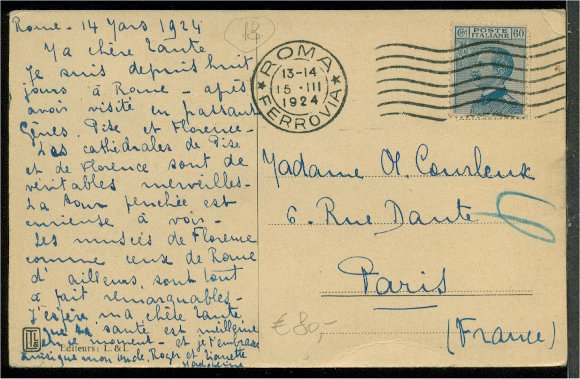 Rome - 14 Mars 1924
Ma chère Tante
Je suis depuis huit
jours à Rome - après
avoir visité en passant
Gênes, Pise et Florence -
Les cathédrales de Pise
et de Florence sont de
véritables merveilles -
La Tour penchée est
curieuse à voir -
Les musées de Florence
comme ceux de Rome
d'ailleurs, sont tout
à fait remarquables -
J'espère, ma chère Tante
que ta santé est meilleure
en ce moment - et je t'embrasse
ainsi que mon oncle, Roger et
Editeurs: L. & L.
12
ROMA
FERROVIA
13-14
15 · III
1924
POSTE
ITALIANE
60
Madame A. Courleux
6. Rue Dante
Paris
(France)
6
€ 80,-